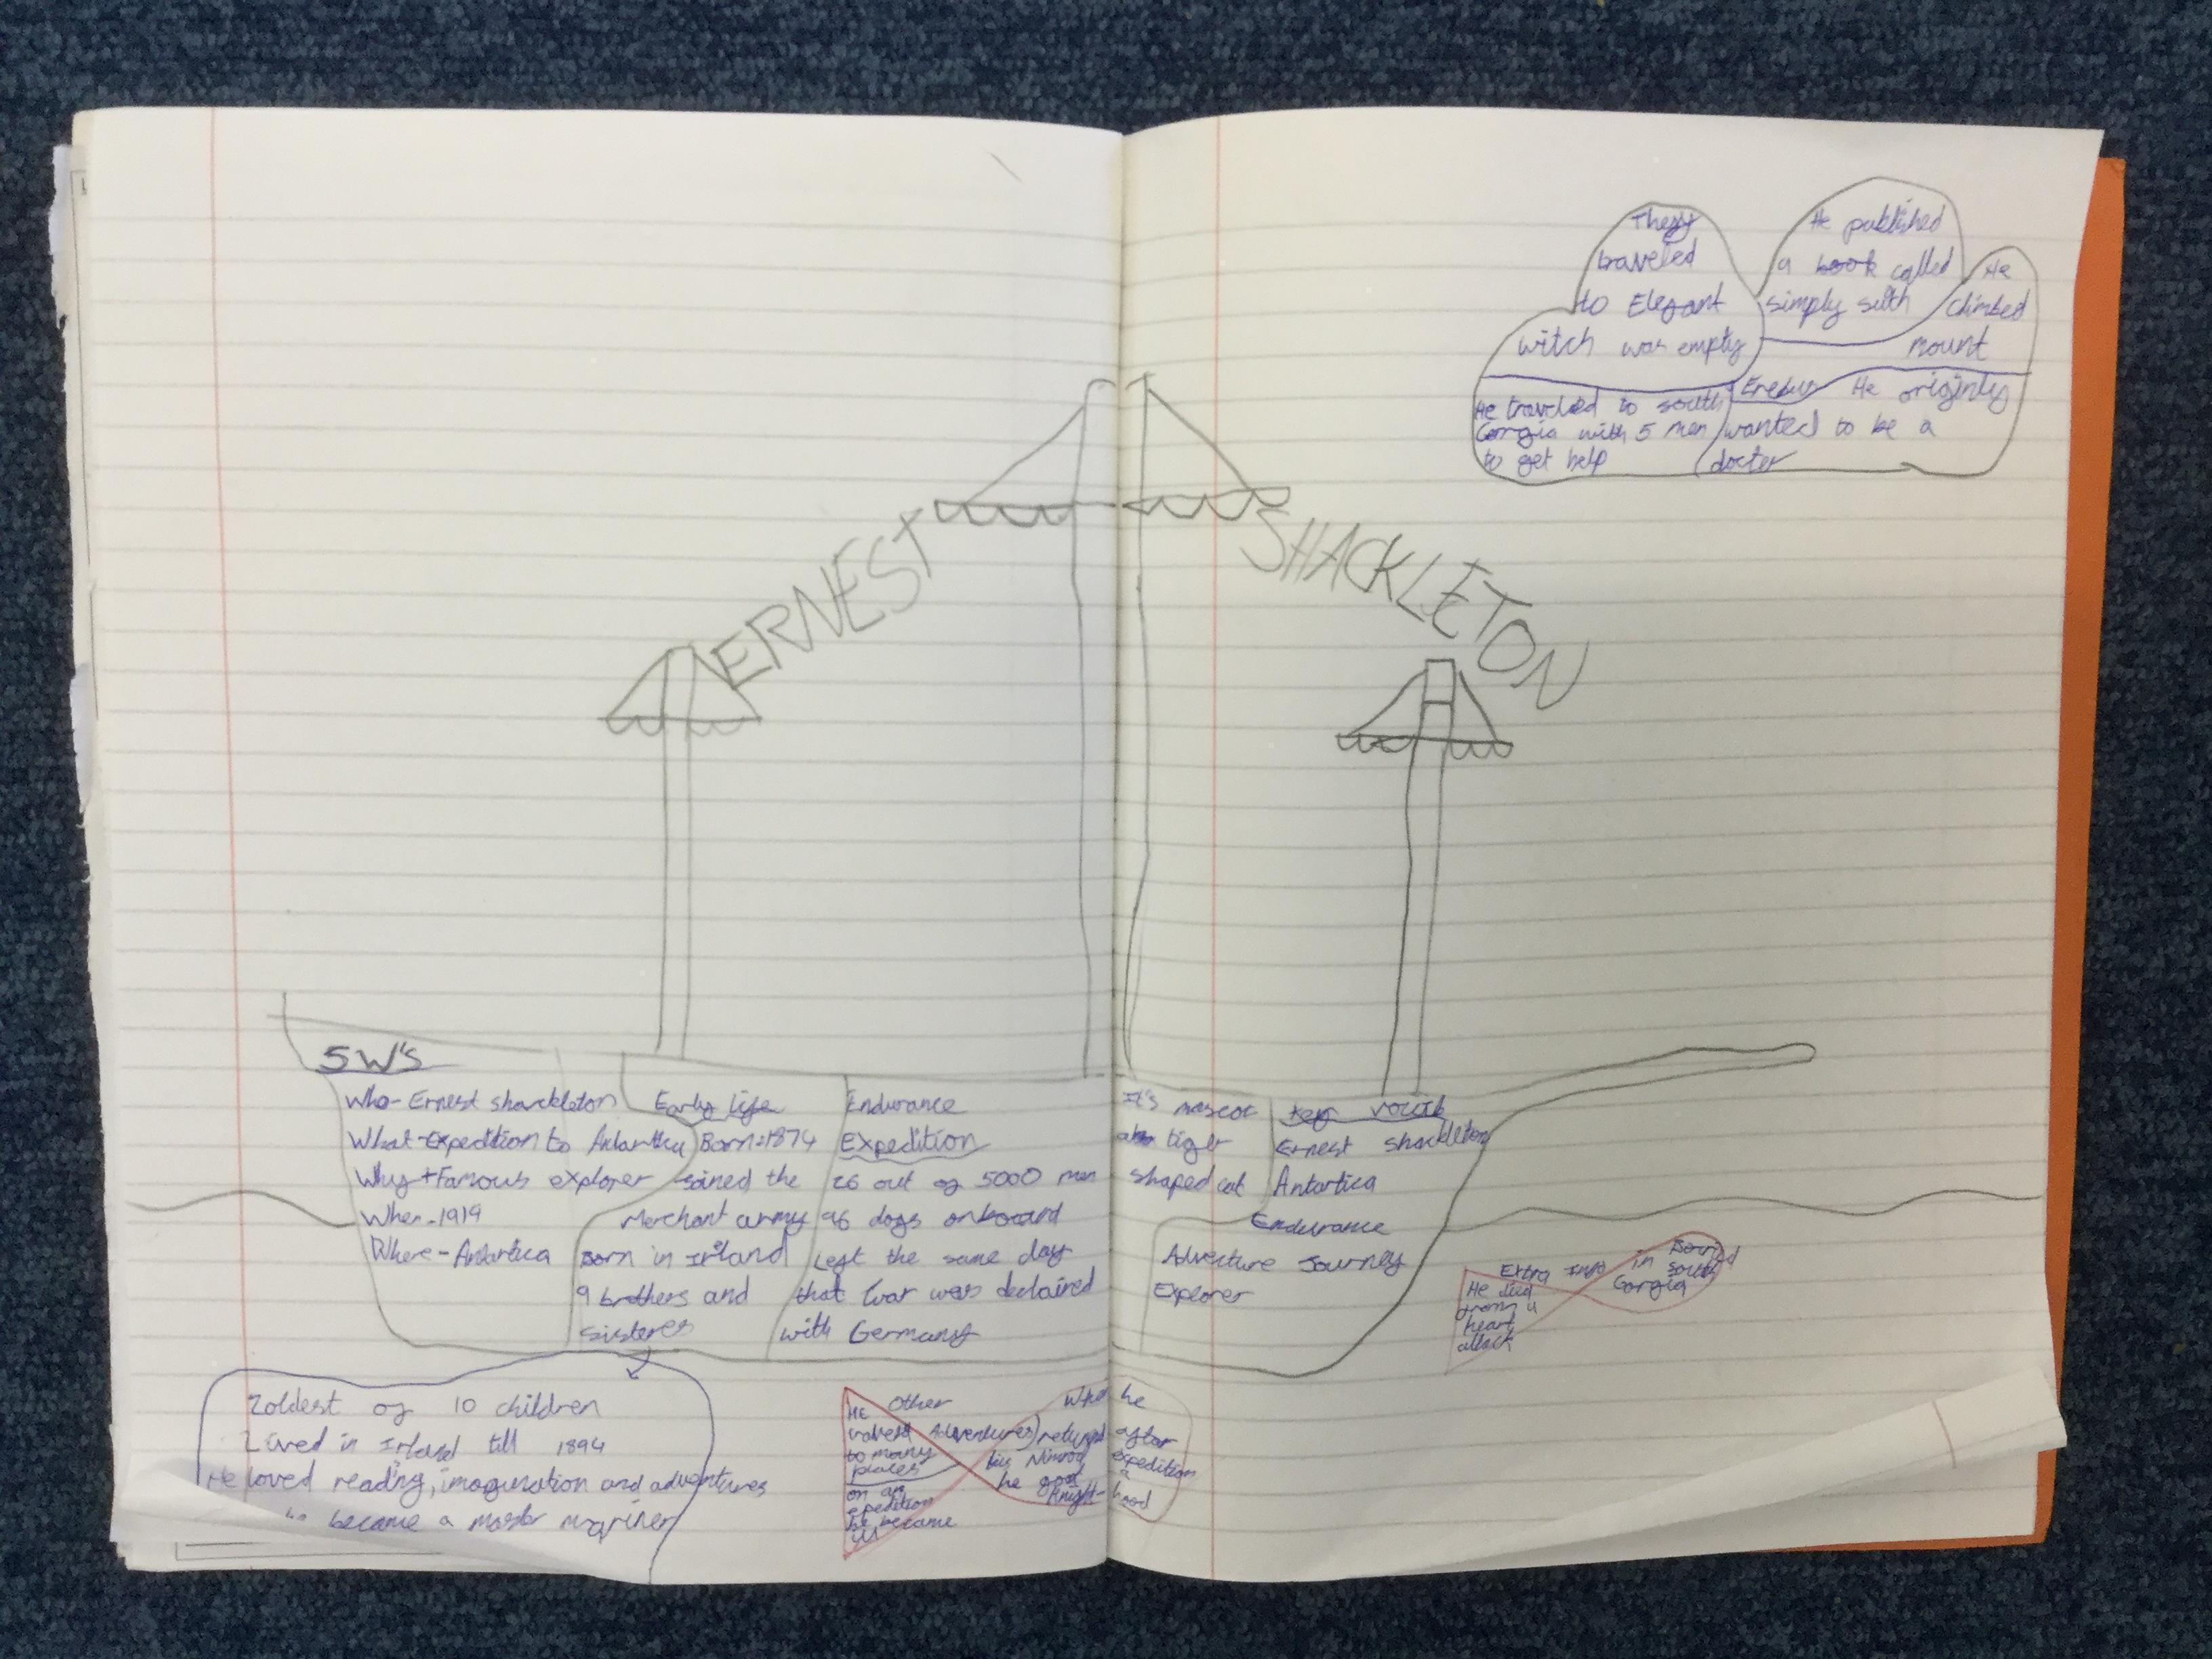 They
traveled
to Elegant
witch was empty
He published
a book called
simply suth
He
climbed
mount
Eredus
He travelled to south
Gorgia with 5 men
to get help
He originly
wanted to be a
docter
ERNEST SHACKLETON
5 W'S
Who- Ernest sharckleton
What-Expedition to Antartica
Why-Famous explorer
When-1919
Where-Antartica
Early life
Born:1874
Joined the
Merchant army
Born in Irland
9 brothers and
sisteres
Endurance
Expedition
26 out of 5000 men
96 dogs onboard
Left the same day
that war was declaired
with Germany
It's mascot
tiger
shaped cat
Key vocab
Ernest shackleton
Antartica
Endurance
Adventure Journey
Explorer
Extra Info
He died
from a
heart
attack
in south
Gorgia
2oldest of 10 children
Lived in Irland till 1894
He loved reading, imagination and adventures
became a master mariner
Other
Adventures
He
to many
places
on an
expedition
he became
ill
When he
returned after
his Nimrod expedition
he got a
Knight-hood